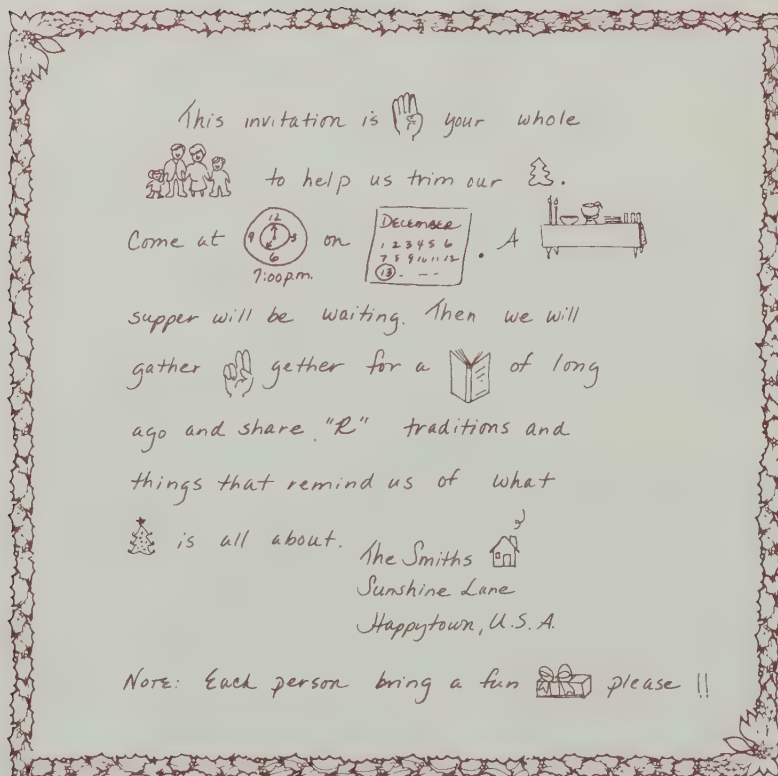 This invitation is your whole
to help us trim our .
Come at 12 3 6 9 on DECEMBER . A
1 2 3 4 5 6
7 8 9 10 11 12
13 . - -
7:00 p.m.
supper will be waiting. Then we will
gather gether for a of long
ago and share "R" traditions and
things that remind us of what
is all about.
The Smiths
Sunshine Lane
Happytown, U.S.A.
NOTE: Each person bring a fun please !!